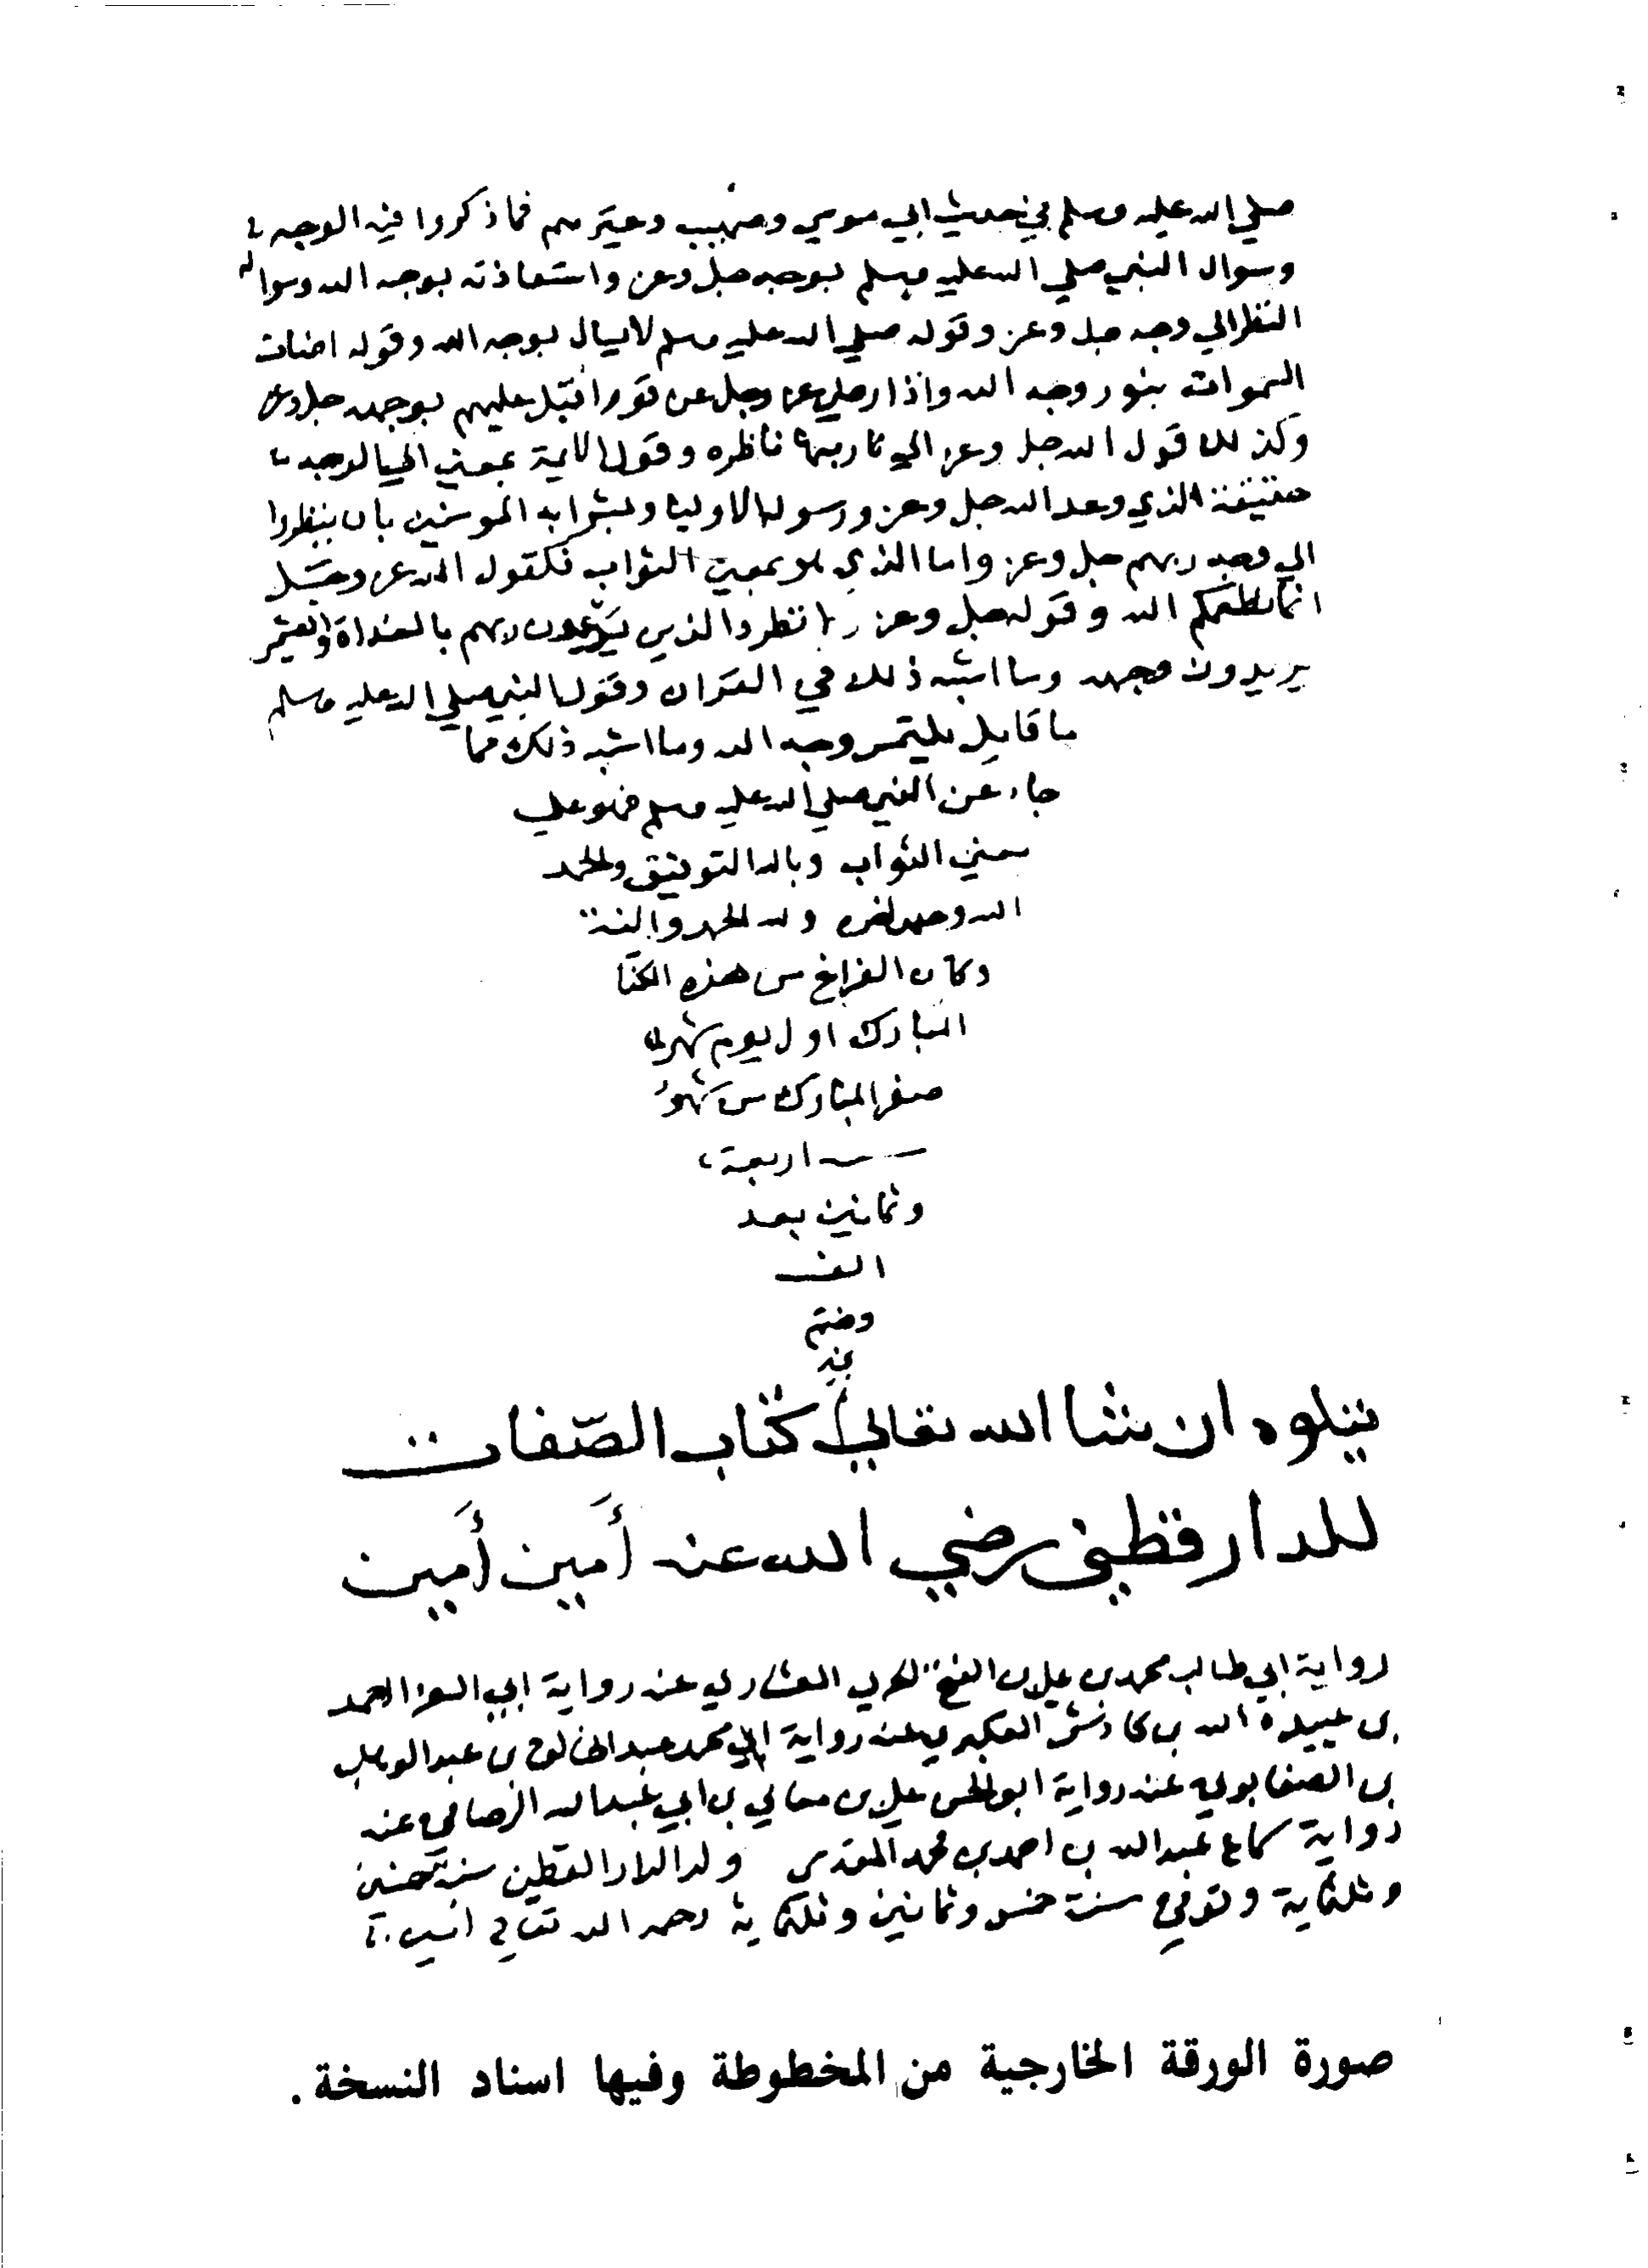 صلي الله عليه وسلم في حديث ابي موسي وصهيب وغيرهم فما ذكروا فيه الوجه
وسوال النبي صلي الله عليه وسلم بوجهه جل وعز واستعاذته بوجه الله وسواله
النظر الي وجهه جل وعز وقوله صلي الله عليه وسلم لا يسال بوجه الله وقوله اضات
السموات بنور وجه الله واذا رضي عز وجل عن قوم اقبل عليهم بوجهه جل وعز
وكذلك قول الله جل وعز الي ربها ناظره وقول الايمة بمعني الي الوجه
حقيقة الذي وعد الله جل وعز ورسوله الاوليا وبشرا به المومنين بان ينظروا
الي وجه ربهم جل وعز واما الذي هو بمعين الثواب فكقول الله عز وجل
انما نطعمكم الله وقوله جل وعز ولا تطرد الذين يدعون ربهم بالغداة والعشي
يريدون وجهه وما اشبه ذلك في القران وقول النبي صلي الله عليه وسلم
ما قايل يلتمس وجه الله وما اشبه ذلك مما
جاء عن النبي صلي الله عليه وسلم فهو علي
معني الثواب وبالله التوفيق والحمد
الله وحده وله الحمد والمنة
وكان الفراغ من هذه الكتا
المبارك اول يوم شهر
صفر المبارك من شهور
سنة اربعة
وثمانين بعد
الف
وختم
يتلوه ان شا الله تعالي كتاب الصفات
للدارقطني رضي الله عنه أمين أمين
رواية ابي طالب محمد بن علي بن الفتح الحربي العشاري عنه رواية ابي العز احمد
بن عبيد الله بن كادش العكبري عنه رواية ابي محمد عبد الخالق بن عبد الوهاب
بن الصابوني عنه رواية ابو الحسن علي بن معالي بن ابي عبد الله الرصافي عنه
رواية سماع عبد الله بن احمد بن محمد المقدسي ولد الدارالقطين سنة خمسين
وثلثماية وتوفي سنت خمس وثمانين وثلثماية رحمه الله تعالي امين
صورة الورقة الخارجية من المخطوطة وفيها اسناد النسخة .